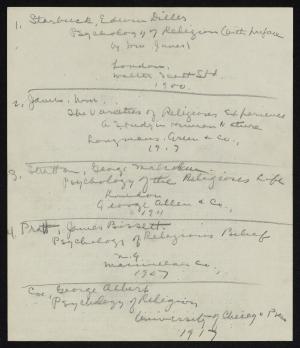 1. Starbuck, Edwin Diller
Psychology of Religion (with preface
by Wm James)
London.
Walter Scott Ltd.
1900.
2, James, Wm.
The Varieties of Religious Experience
A Study in Human Nature
Longmans, Green & Co.,
1917
3. Stratton, George Malcolm
Psychology of the Religious Life
London
George Allen & Co.,
1911
4. Pratt, James Bissett.
Psychology of Religious Belief
N.Y.
Macmillan Co.,
1907
Coe, George Albert
Psychology of Religion
University of Chicago Press
1917